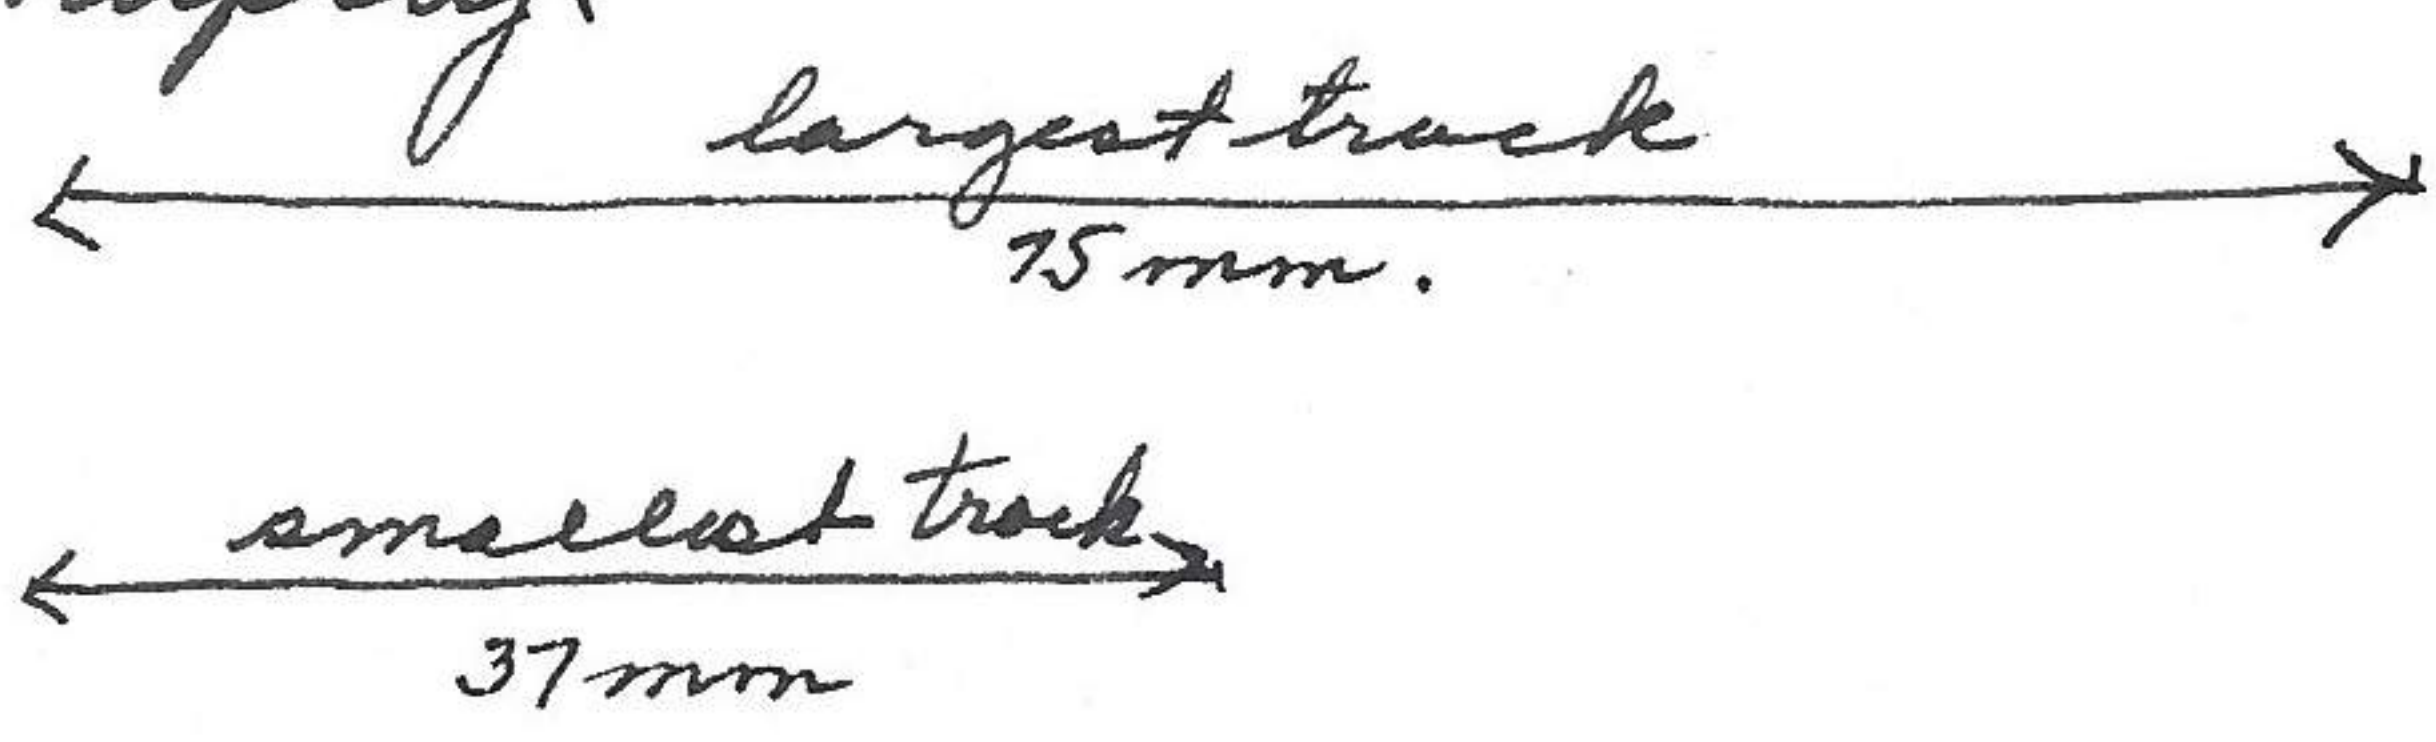 largest track
75 mm.
smallest track
37 mm